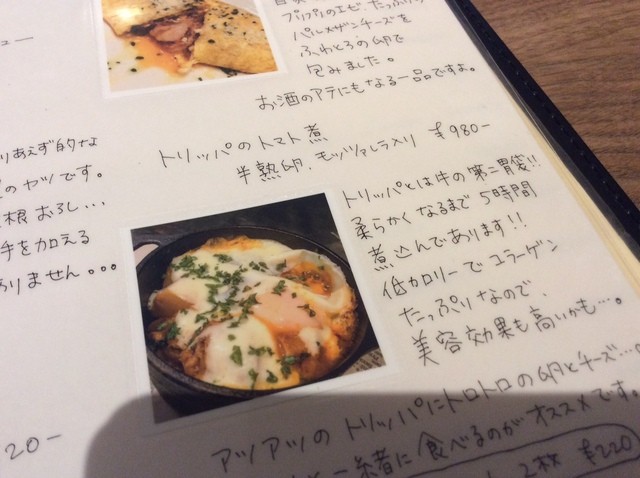 プリプリのエビ、たっぷりの
パルメザンチーズを
ふわとろの卵で
包みました。
お酒のアテにもなる一品ですよ。
ュー
りあえず的な
のヤツです。
根おろし...
手を加える
ありません。。。
20-
トリッパのトマト煮
半熟卵、モッツァレラ入り ¥980-
トリッパとは牛の第二胃袋!!
柔らかくなるまで5時間
煮込んであります!!
低カロリーでコラーゲン
たっぷりなので、
美容効果も高いかも...。
アツアツのトリッパにトロトロの卵とチーズ...
と一緒に食べるのがオススメです。
2枚 ¥220